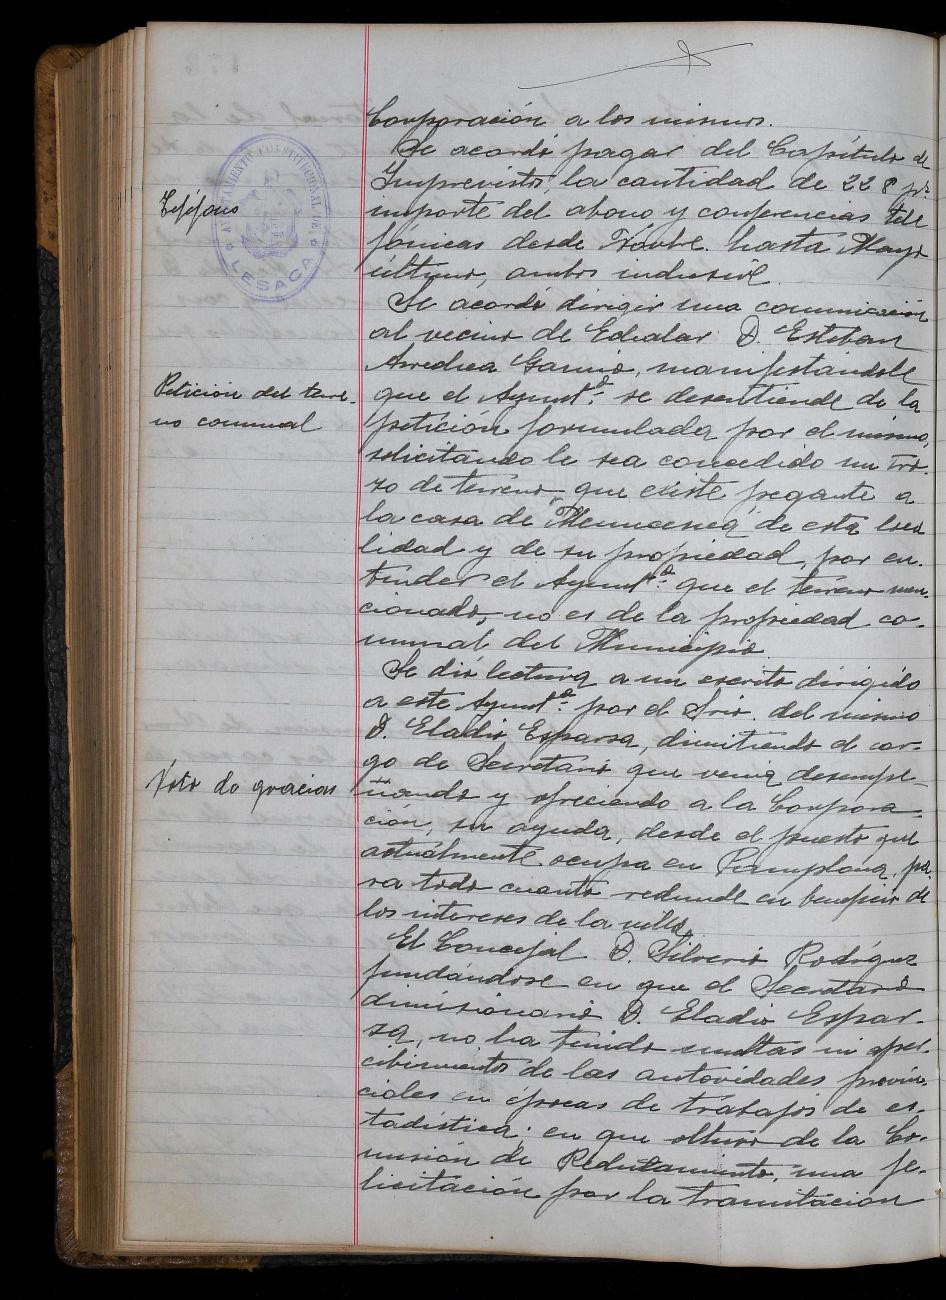 Corporación a los mismos.
Se acordó pagar del Capítulo de
Imprevistos, la cantidad de 228 pts.
Teléfono
importe del abono y conferencias tele
fónicas desde hasta Mayo
último, ambos inclusive
AYUNTAMIENTO CONSTITUCIONAL DE
LESACA
Se acordó dirigir una comunicación
al vecino de Echalar D. Esteban
Arredrea Garino, manifestándole
Petición del terre-
no comunal
que el Ayuntº se desentiende de la
petición formulada por el mismo,
solicitando le sea concedido un tro-
zo de terreno que existe pegante a
la casa de de esta loca
lidad y de su propiedad, por en-
tender el Ayuntº que el terreno men-
cionado, no es de la propiedad co-
munal del Municipio.
Se dió lectura a un escrito dirigido
a este Ayuntº por el Srio. del mismo
D. Eladio Esparza, dimitiendo el car-
go de Secretario que venia desempe-
Voto de gracias
ñando y ofreciendo a la Corpora-
ción, su ayuda, desde el puesto que
actualmente ocupa en Pamplona, pa-
ra todo cuanto redunde en beneficio de
los intereses de la villa.
El Concejal D. Silverio Rodríguez
fundándose en que el Secretario
dimisionario D. Eladio Espar-
za, no ha tenido multas ni aper-
cibimientos de las autoridades provin-
ciales en épocas de trabajos de es-
tadística; en que obtuvo de la Co-
misión de Reclutamiento, una fe-
licitación por la tramitación